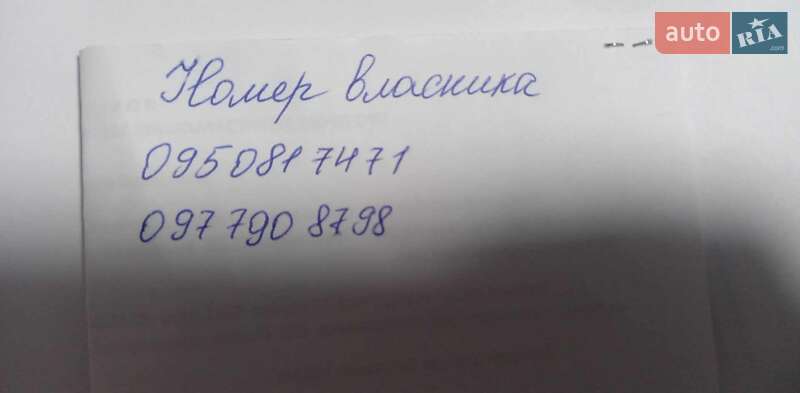 auto RIA.com
Номер власника
0950817471
097 790 8798